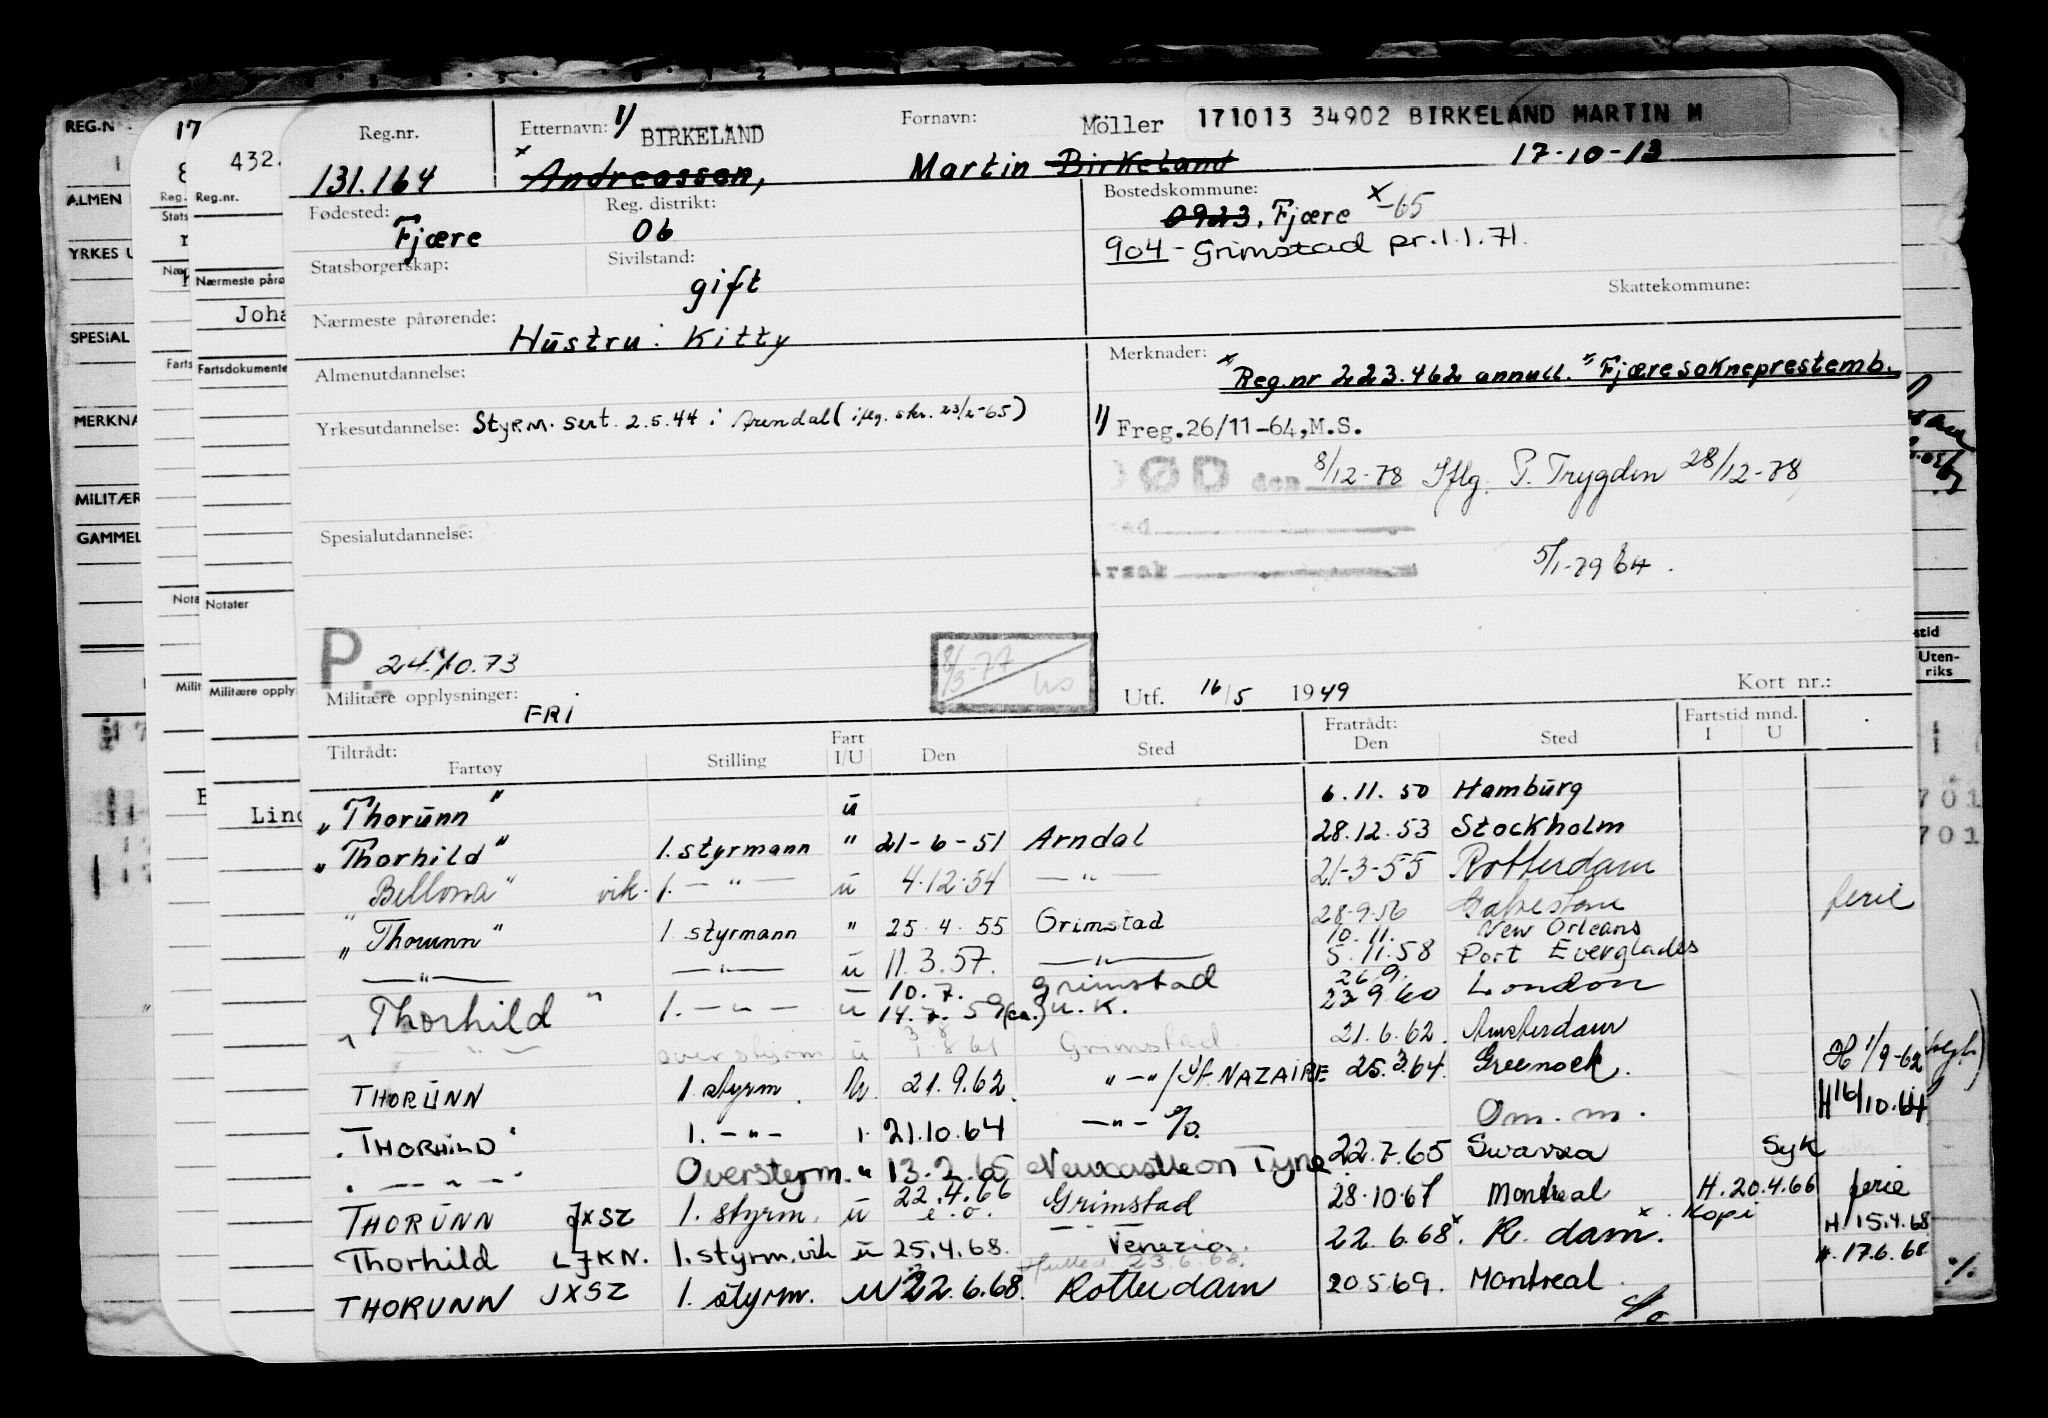 171013 34902 BIRKELAND MARTIN M
Reg.nr. Etternavn: 1/ BIRKELAND Fornavn: Möller
131.164 x Andreassen, Martin Birkeland 17-10-13
Fødested: Fjære Reg. distrikt: 06 Bostedskommune: 0923, Fjære x-65
904 - Grimstad pr. 1.1.71.
Statsborgerskap: Sivilstand: gift Skattekommune:
Nærmeste pårørende: Hustru: Kitty
Almenutdannelse: Merknader: x Reg.nr 223.462 annull. " Fjæresokneprestemb.
Yrkesutdannelse: Styrm. sert. 2.5.44 i Arendal (iflg. skr. 23/2-65)
1/ Freg.26/11-64,M.S.
DØD den 8/12-78 Iflg. P. Trygden 28/12-78
Spesialutdannelse:
Årsak
5/1-79
P. 24.10.73 8/3-77
Militære opplysninger: FRI Utf. 16/5 1949 Kort nr.:
Tiltrådt: Fartøy Stilling Fart I/U Den Sted Fratrådt: Den Sted Fartstid mnd. I U
"Thorunn" u 6.11.50 Hamburg
"Thorhild" 1. styrmann " 21-6-51 Arndal 28.12.53 Stockholm
"Bellona" vik. 1. — " — u 4.12.54 — " — 21-3-55 Rotterdam
"Thorunn" 1 styrmann " 25.4.55 Grimstad 28-9-56 Galveston ferie
10.11. New Orleans
— " — — " — u 11.3.57. — " — 5.11.58 Port Everglades
"Thorhild" 1. — " — u 10.7. Grimstad 26.9.
14.7.59 (ca.) u.K. 23.9.60 London
— " — overstyrm u 1.8.61 Grimstad. 21.6.62. Amsterdam
THORUNN 1 styrm. u. 21.9.62. " — " / St. NAZAIRE 25.3.64. Greenock. H 1/9-62
"THORHILD" 1. — " — 21.10.64 — " — Om. m. H 16/10.64
" — " — " Overstyrm. " 13.2.65 Newcastle on Tyne 22.7.65 Swansea Syk
THORUNN JXSZ 1. styrm. u 22.4.66 Grimstad 28.10.67 Montreal H. 20.4.66 ferie
Kopi H 15.4.68
Thorhild LJKN. 1. styrm. vik u 25.4.68. Venezia. 22.6.68x. R.damx. H. 17.6.68
23.6.68.
THORUNN JXSZ 1. styrm. U 22.6.68. Rotterdam 20.5.69. Montreal.
REG.N
ALMEN
YRKES U
SPESIAL
MERKNA
MILITÆR
GAMMEL
17
Reg.
Stats
Nær
Farts
Nota
Milit
432.
Reg.nr.
Nærmeste pårø
Joha
Fartsdokumente
Notater
Militære opply
Lind
stid
Uten-
riks
701
701